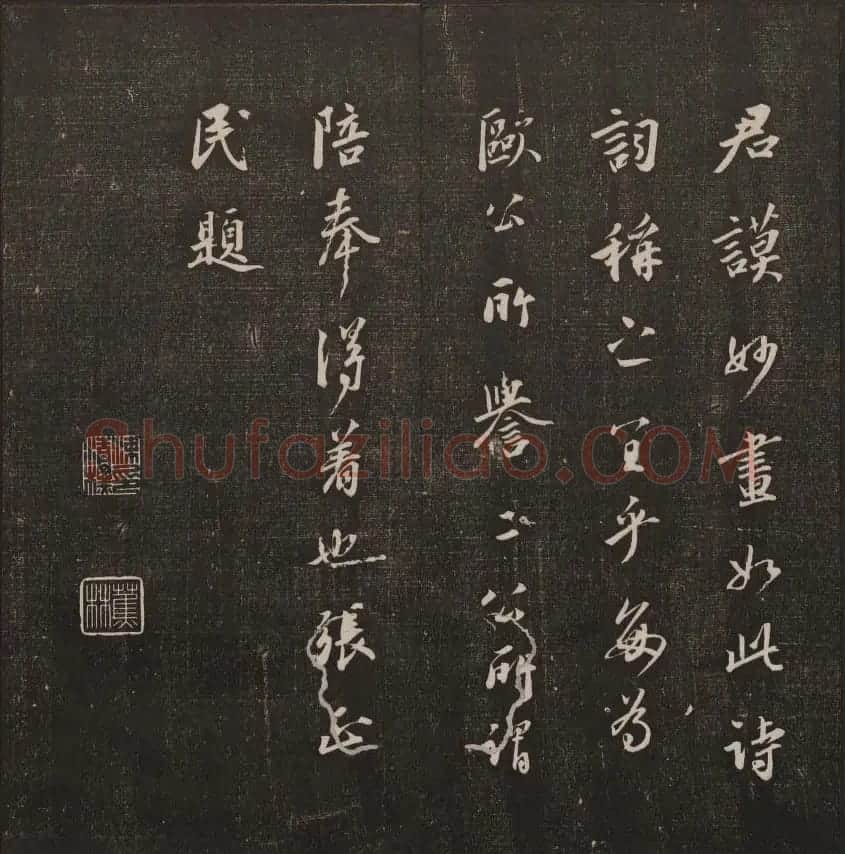 君謨妙畫如此詩
詞稱之宜乎每為
歐公所譽二公所謂
陪奉得着也張正
民題
蕉林
Shufaziliao.COM